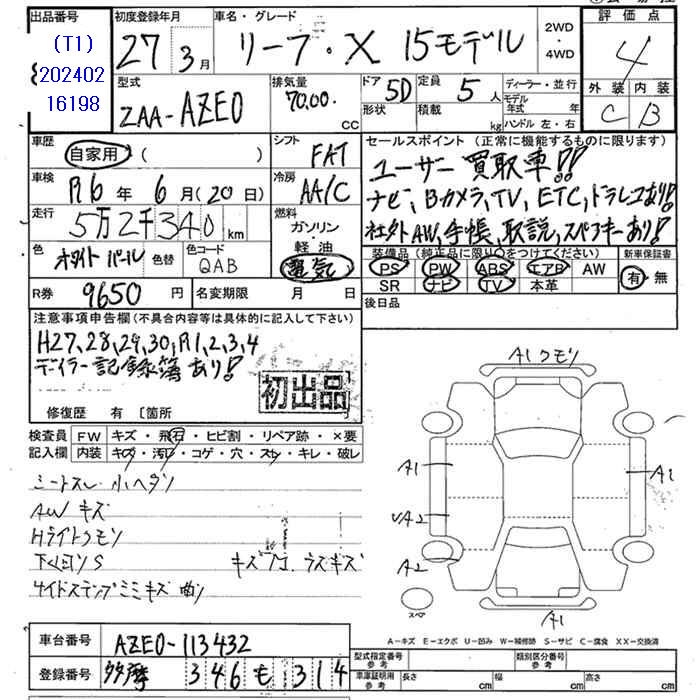 出品番号
(T1)
202402
16198
初度登録年月
27年 3月
車名・グレード
リーフ・X 15モデル
2WD
・
4WD
評価点
4
外装 内装
C B
型式
ZAA-AZE0
排気量
70.00. CC
ドア 5D
形状
定員 5人
積載 kg
ディーラー・並行
モデル年式 年
ハンドル 左・右
車歴
自家用 ( )
シフト
FAT
セールスポイント (正常に機能するものに限ります)
ユーザー買取車!!
ナビ、Bカメラ、TV、ETC、ドラレコあり!
社外AW、手帳、取説、スペアキーあり!
車検
R6年 6月(20日)
冷房
AA/C
走行
5万2千340km
燃料
ガソリン
・
軽油
電気
色 ホワイトパール 色替
色コード
QAB
装備品(純正品に限り○をつけてください)
PS PW ABS エアB AW
SR ナビ TV 本革
新車保証書
有・無
R券 9650円
名変期限 月 日
後日品
注意事項申告欄(不具合内容等は具体的に記入して下さい)
H27,28,29,30,R1,2,3,4
ディーラー記録簿あり!
初出品
修復歴 有 〔箇所
検査員
記入欄
FW キズ・飛石・ヒビ割・リペア跡・×要
内装 キズ・汚レ・コゲ・穴・スレ・キレ・破レ
シートスレ 小ヘタリ
AWキズ
Hライトクモリ
下回りS
キズ 凹 ラスキズ
サイドステップミミキズ 曲り
A1クモリ
A1
A1
UA2
A2
スペア
A1
A-キズ E-エクボ U-凹み W-補修跡 S-サビ C-腐食 XX-交換済
車台番号
AZE0-113432
登録番号
多摩 346 も 314
型式指定番号
参考
類別区分番号
参考
車庫証明用
参考
長さ cm
幅 cm
高さ cm